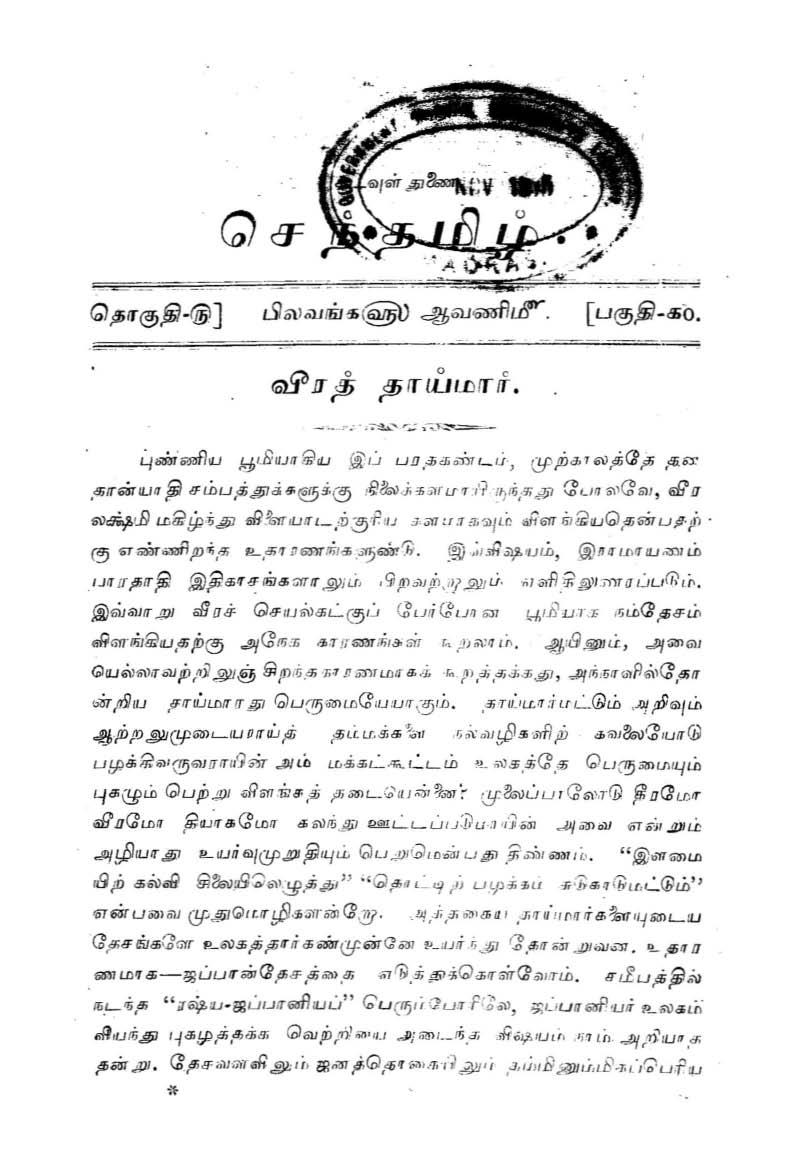 வுள் துணை NOV
செந்தமிழ்.
MADRAS
தொகுதி-௫] பிலவங்க௵ ஆவணி௴. [பகுதி-௧௦.
வீரத் தாய்மார்.
புண்ணிய பூமியாகிய இப் பரதகண்டம், முற்காலத்தே தன
தான்யாதி சம்பத்துக்களுக்கு நிலைக்களமாயிருந்தது போலவே, வீர
லக்ஷ்மி மகிழ்ந்து விளையாடற்குரிய களமாகவும் விளங்கியதென்பதற்
கு எண்ணிறந்த உதாரணங்களுண்டு. இவ்விஷயம், இராமாயணம்
பாரதாதி இதிகாசங்களாலும் பிறவற்றாலும் எளிதிலுணரப்படும்.
இவ்வாறு வீரச் செயல்கட்குப் பேர்போன பூமியாக நம்தேசம்
விளங்கியதற்கு அநேக காரணங்கள் கூறலாம். ஆயினும், அவை
யெல்லாவற்றிலுஞ் சிறந்தகாரணமாகக் கூறத்தக்கது, அந்நாளில்தோ
ன்றிய தாய்மாரது பெருமையேயாகும். தாய்மார்மட்டும் அறிவும்
ஆற்றலுமுடையராய்த் தம்மக்களை நல்வழிகளிற் கவலையோடு
பழக்கிவருவராயின் அம் மக்கட்கூட்டம் உலகத்தே பெருமையும்
புகழும் பெற்று விளங்கத் தடையென்னை? முலைப்பாலோடு தீரமோ
வீரமோ தியாகமோ கலந்து ஊட்டப்படுமாயின் அவை என்றும்
அழியாது உயர்வுமுறுதியும் பெறுமென்பது திண்ணம். “இளமை
யிற் கல்வி சிலையிலெழுத்து” “தொட்டிற் பழக்கம் சுடுகாடுமட்டும்”
என்பவை முதுமொழிகளன்றோ. அத்தகைய தாய்மார்களையுடைய
தேசங்களே உலகத்தார்கண்முன்னே உயர்ந்து தோன்றுவன. உதார
ணமாக—ஜப்பான்தேசத்தை எடுத்துக்கொள்வோம். சமீபத்தில்
நடந்த “ரஷ்ய-ஜப்பானியப்” பெரும்போரிலே, ஜப்பானியர் உலகம்
வியந்து புகழத்தக்க வெற்றியை அடைந்த விஷயம் நாம் அறியாத
தன்று. தேசவளவிலும் ஜனத்தொகையிலும் தம்மினும்மிகப்பெரிய
*